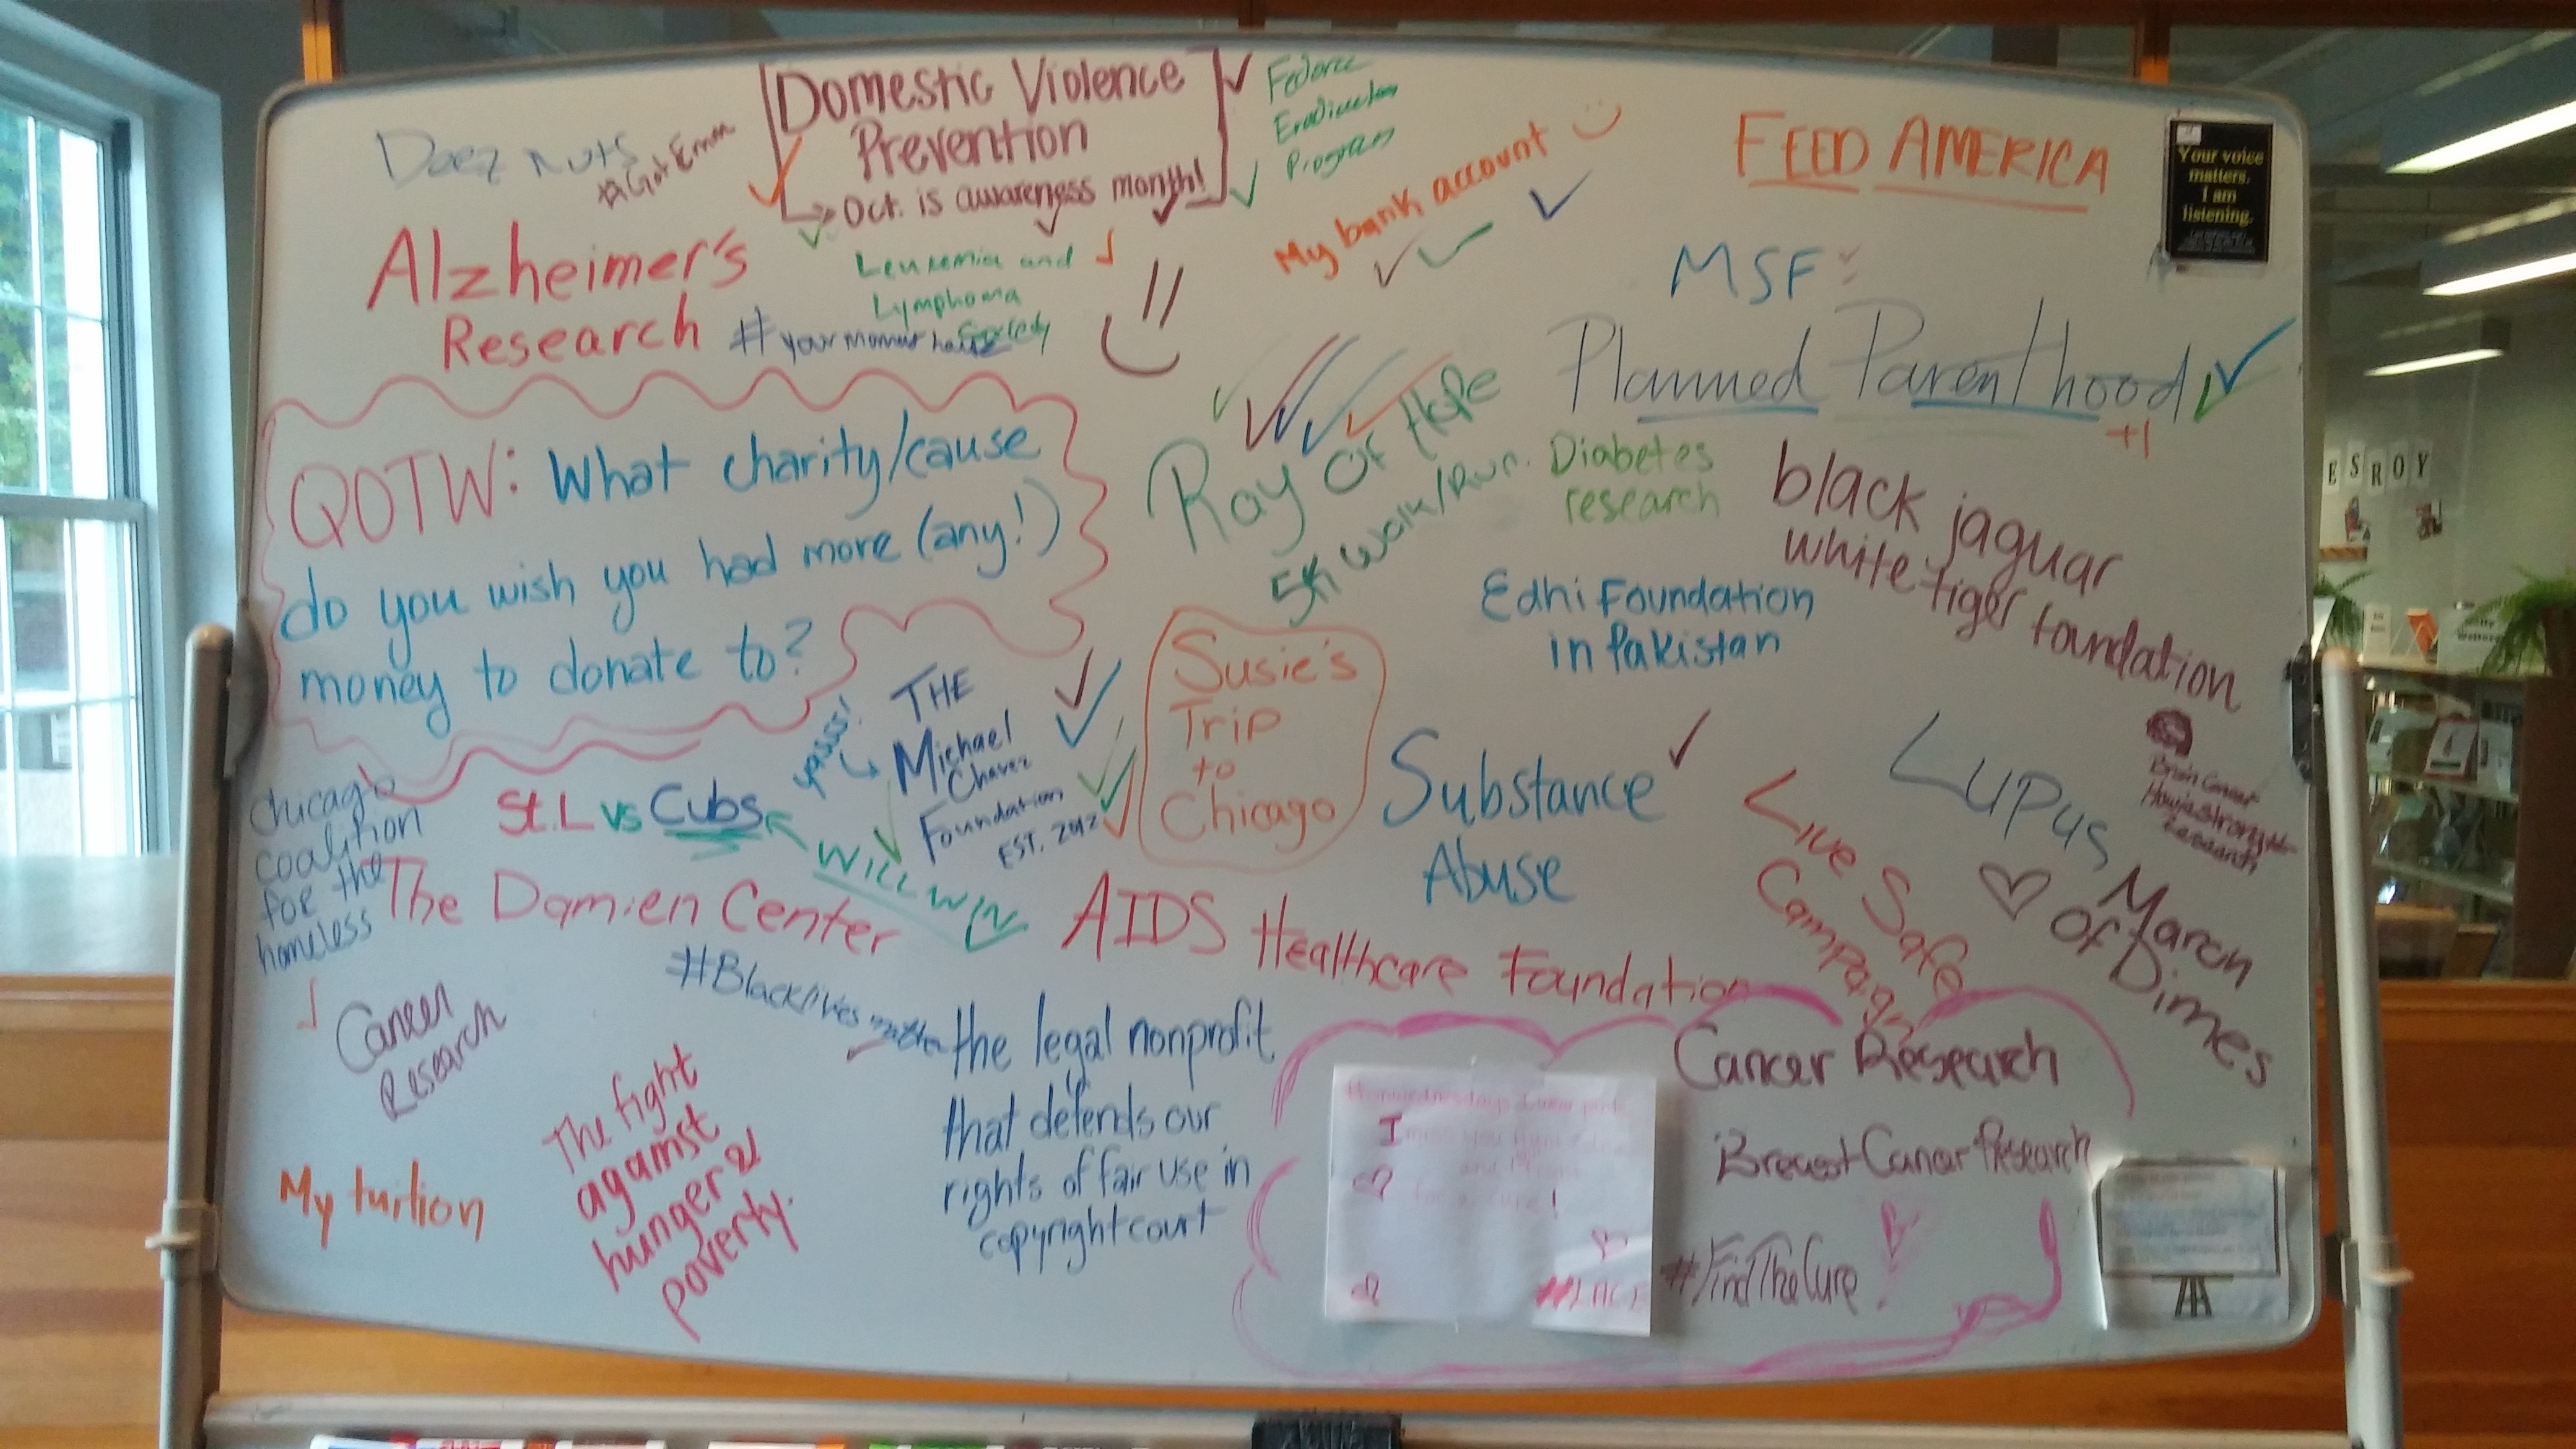 Deez Nuts
#Got Emm
Domestic Violence
Prevention
Oct. is awareness month!
Program
My bank account
FEED AMERICA
Your voice
matters.
I am
listening.
Alzheimer's
Research
Leukemia and
Lymphoma
Society
MSF
Planned Parenthood
+1
QOTW: What charity/cause
do you wish you had more (any!)
money to donate to?
Ray Of Hope
5K Walk/Run.
Diabetes
research
black jaguar
white tiger foundation
Edhi Foundation
in Pakistan
Susie's
Trip
to
Chicago
yasss!
THE
Michael
Chavez
Foundation
EST. 2012
St.L vs Cubs
WILL WIN
Chicago
coalition
for the
homeless
Substance
Abuse
Live Safe
Campaign
Lupus
March
Of Dimes
Brain Cancer
Research
ESROY
The Damien Center
AIDS Healthcare Foundation
#Blacklives matter
Cancer
Research
the legal nonprofit
that defends our
rights of fair use in
copyright court
My tuition
The fight
against
hunger &
poverty.
Cancer Research
Breast Cancer Research
#FindTheCure
I